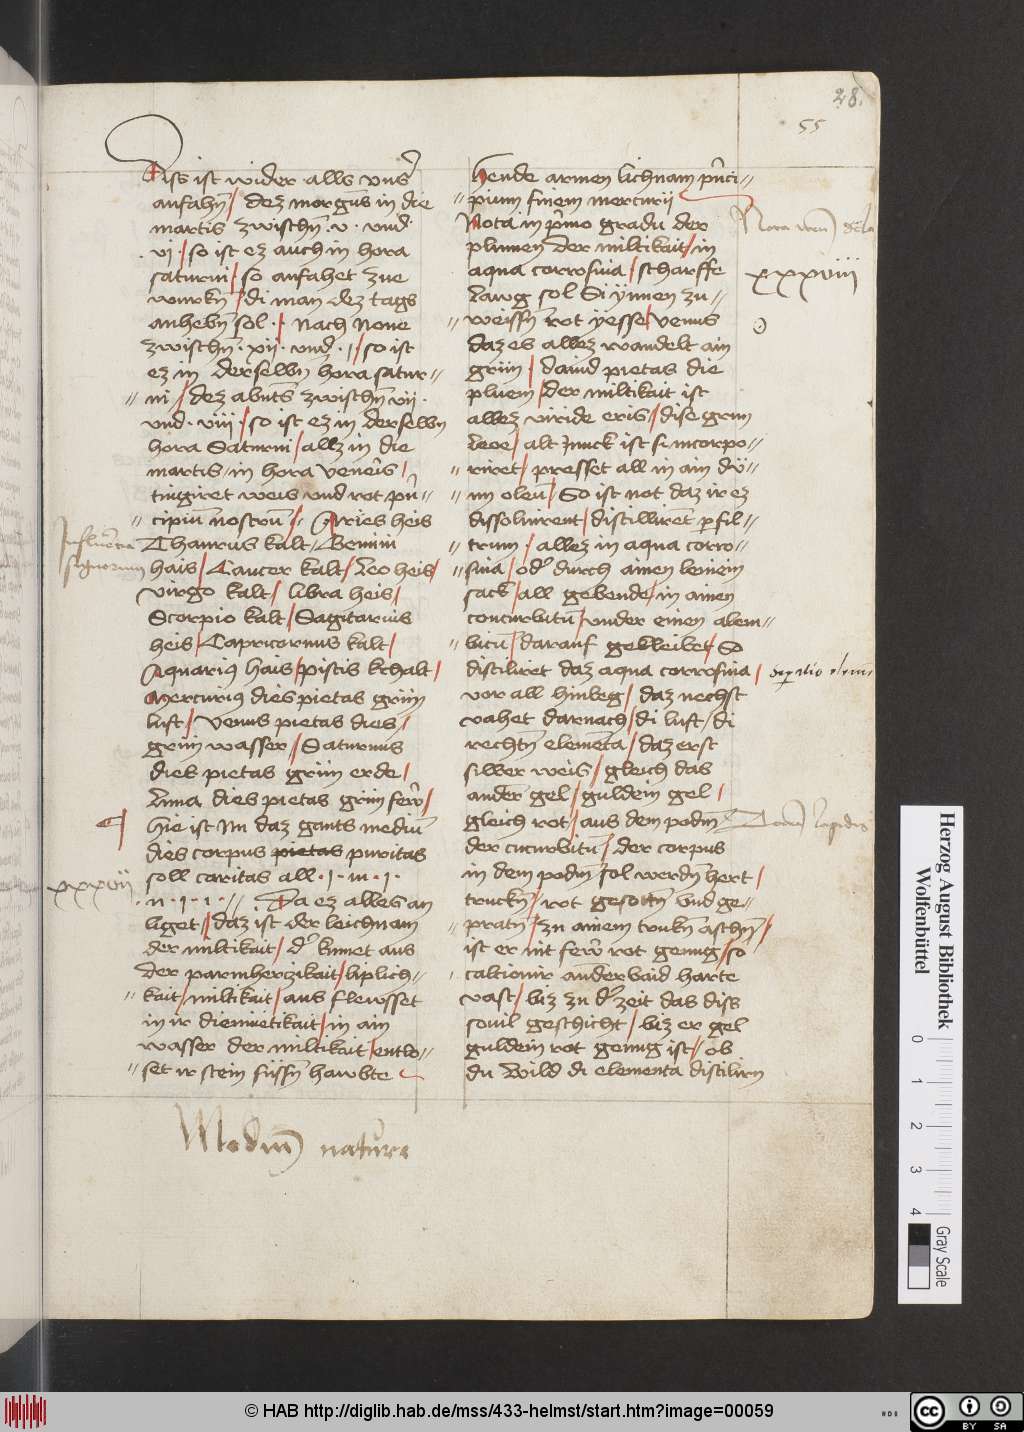 28.
55
Diss ist wider alls vnser
anfahn / dez morgens in die
martis zwischn · v · vnd
· vi · / so ist ez auch in hora
saturni / so anfahet zue
wurkn / di man dez tags
anhebn sol · / Nach None
zwischn · xii · vnd · 1 / so ist
ez in derselbn hora satur〃
〃 ni / dez abents zwischn vii ·
vnd · viii · / so ist ez in derselbn
hora Saturni / allz in die
martis / in hora veneris /
tingiret weis vnd rot prin〃
〃 cipium nostrum / Aries heis
Thaurus kalt / Gemini
hais / Cancer kalt / Leo heis /
virgo kalt / libra heis /
Scorpio kalt / Sagitarius
heis / Capricornus kalt /
Aquarius hais / piscis kchalt /
Mercurius dies pietas grün
luft / Venus pietas dies /
grün wasser / Saturnus
dies pietas grün erde /
Luna dies pietas grün ferr /
hie ist Nu daz gants medium
dies corpus pietas puritas
soll caritas all · 1 · iii · 1 ·
· ii · 1 · 1 · // Da ez alles an
liget / daz ist der leichnam
der miltikait / der kumet aus
der parmherzikait / liplich〃
〃 kait / miltikait / aus flewsset
in ir diemüetikait / in ain
wasser der miltikait / entlo〃
〃 set ir stein füssn hawbte
Influencia
signorum
xxxvii
Medium nature
hende armen lichnam princi〃
〃 pium finem mercurij
Nota in primo gradu der
plumen der miltikait / in
aqua corrosiua / scharffe
Lawg sol Si ynnen zu〃
〃 weissn rot yesse / venus
daz es allez wandelt ain
grün / dauid pietas die
pluem / der miltikait ist
allez viride eris / dise grun
Leoe / alt Junck ist si incorpo〃
〃 riret / presset all in ain dü〃
〃 nn oleum / So ist not daz ir ez
dissoluirent / distilliret per fil〃
〃 trum / allez in aqua corro〃
〃 siua / oder durch ainen leinein
sack / all gebende / in ainen
concurbitum / vnder einen alem〃
〃 bicum / darauf gekleibet / So
distiliret daz aqua corrosiua /
vor all hinbeg / daz nechst
vahet darnach / di luft / di
rechtn elementa / daz erst
silber weis / gleich das
ander gel / guldein gel /
gleich rot / aus dem podm
der cucurbitum / der corpus
in dem podm sol werdn hert /
truckn / rot gesottn vnd ge〃
〃 pratn / zu ainem trukn aschn /
ist er nit ferr rot genug / so
calcionir anderbaid harte
vast / biz zu der zeit das diss
souil geschicht / biz er gel
guldein rot genug ist / ob
du wild di elementa distilirn
Nota
xxxviii
Separatio
lapidis
Herzog August Bibliothek
Wolfenbüttel
0 1 2 3 4
Gray Scale
© HAB http://diglib.hab.de/mss/433-helmst/start.htm?image=00059
HAB
cc BY SA